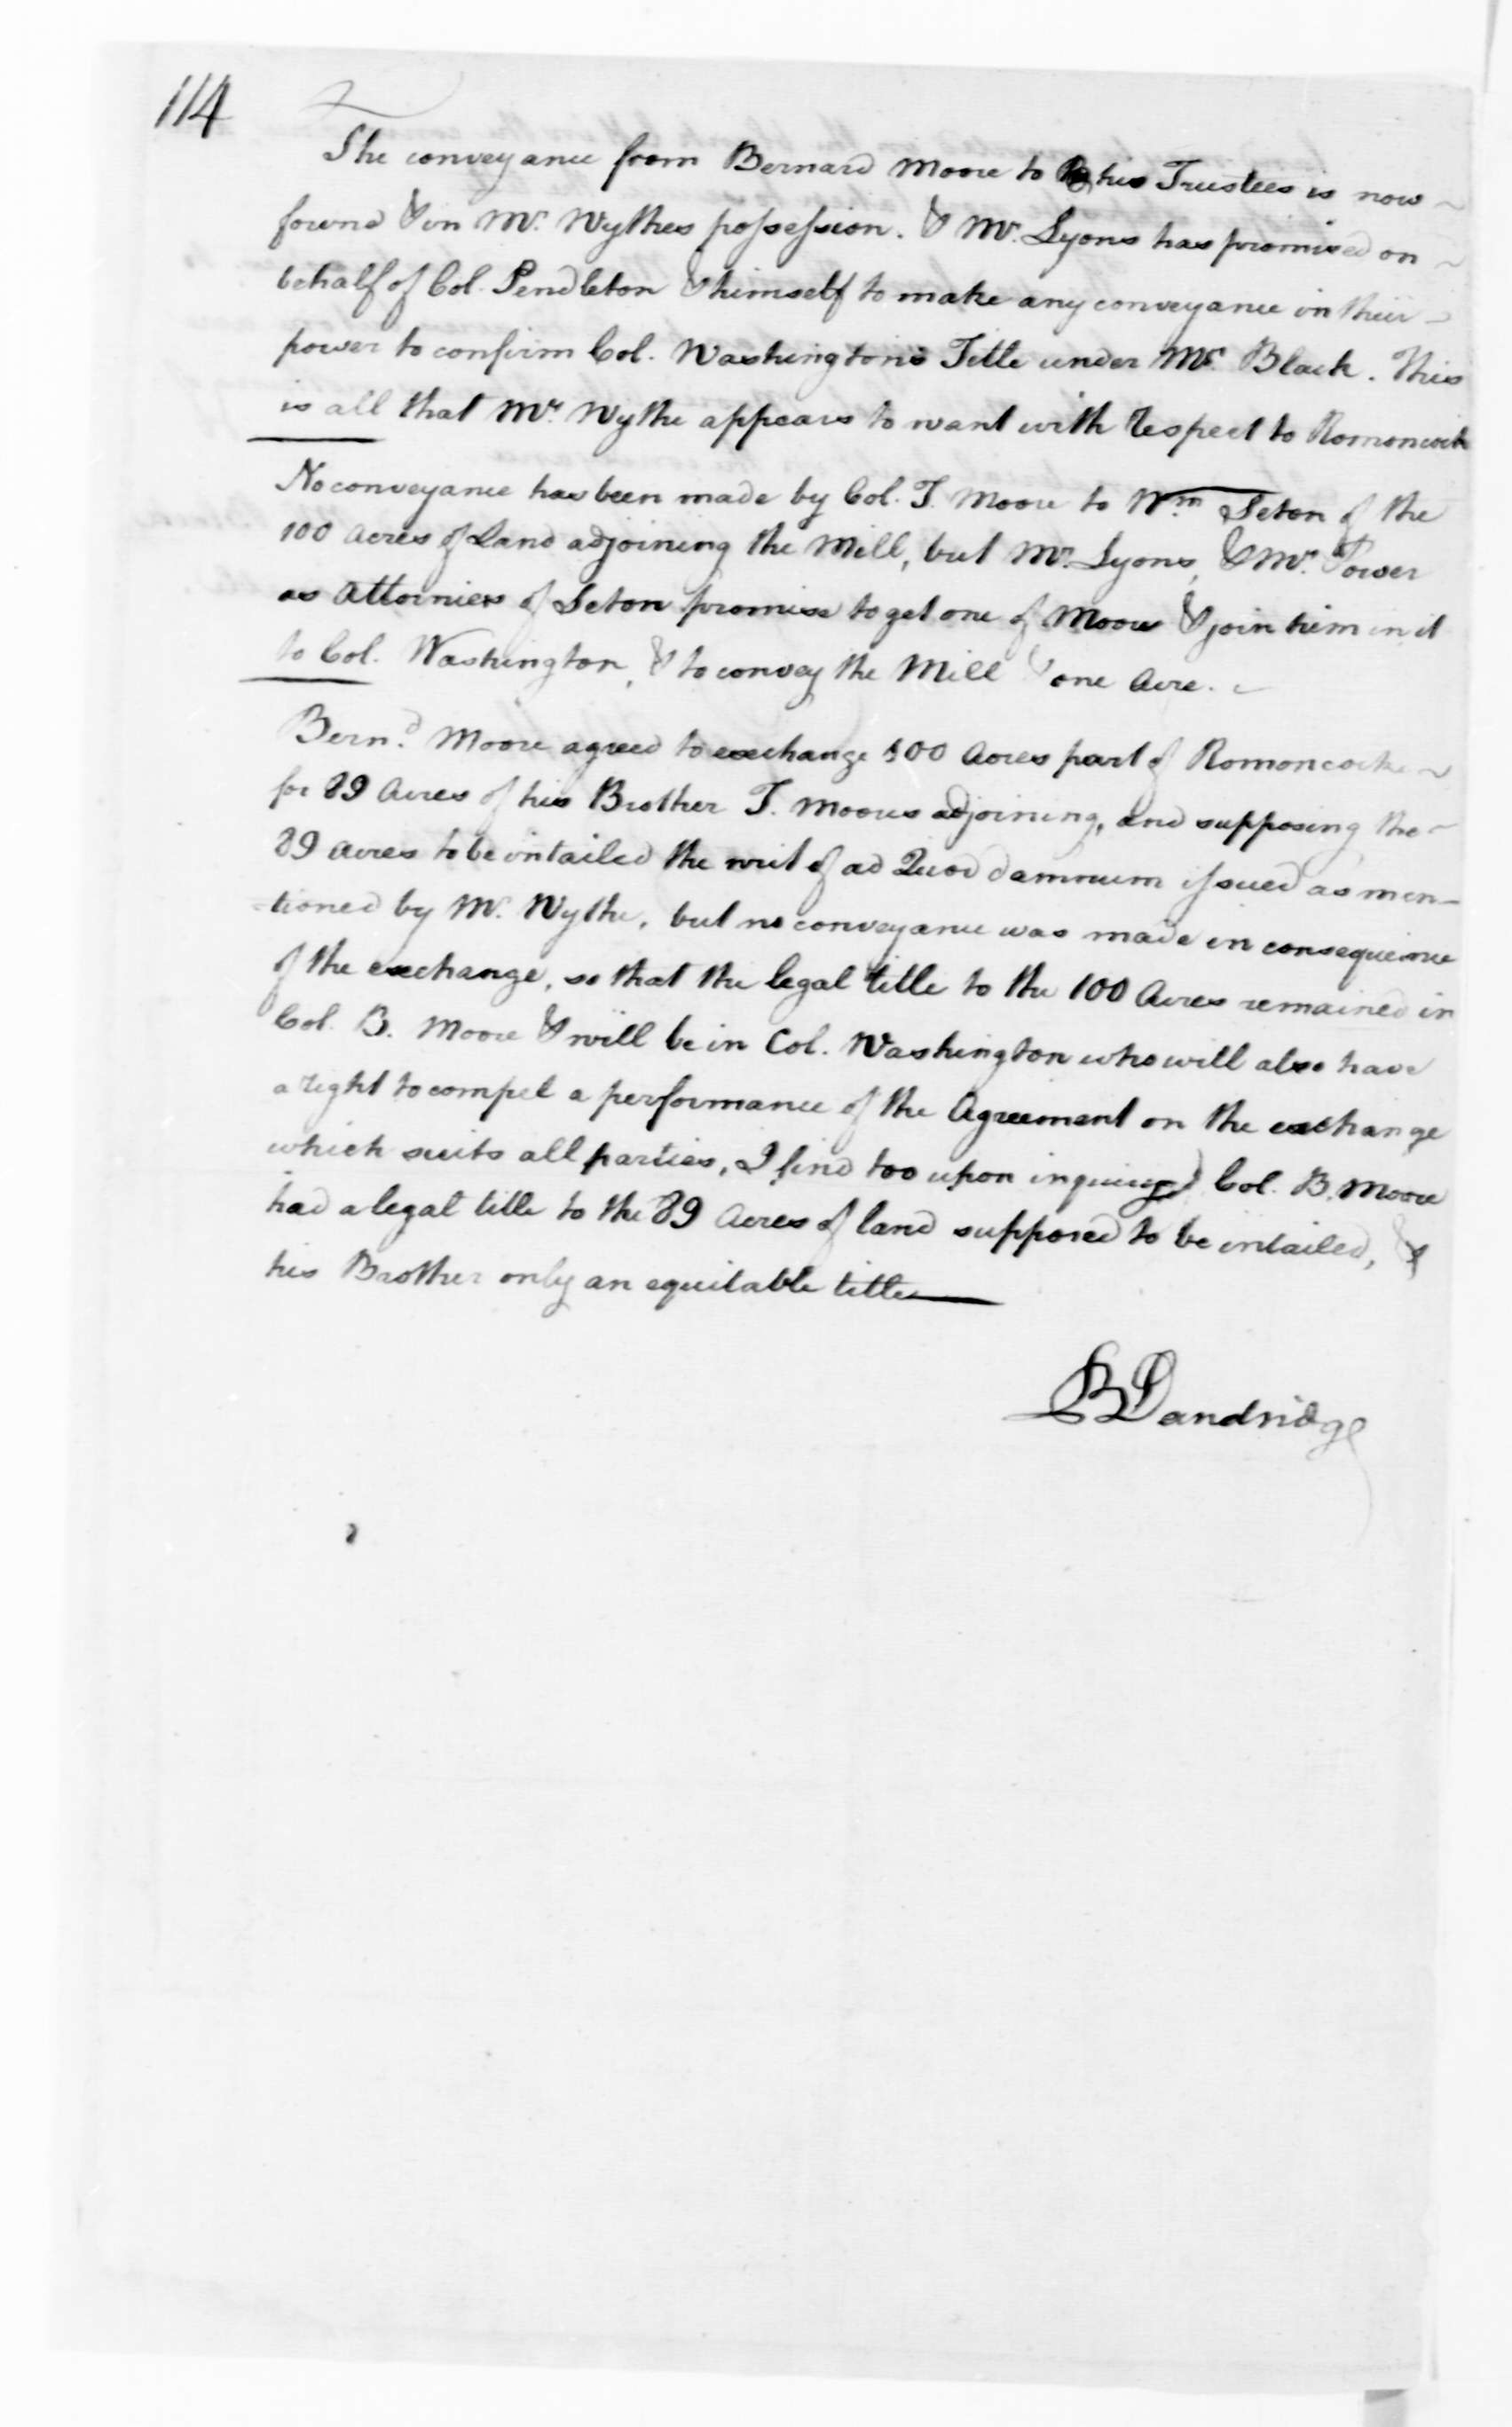 114
The conveyance from Bernard Moore to his Trustees is now
found & in Mr. Wythes possession. & Mr. Lyons has promised on
behalf of Col. Pendleton & himself to make any conveyance in their
power to confirm Col. Washington's Title under Mr. Black. This
is all that Mr. Wythe appears to want with respect to Romoncock
No conveyance has been made by Col. T. Moore to Wm. Seton of the
100 Acres of Land adjoining the Mill, but Mr. Lyons, & Mr. Power
as Attornies of Seton promise to get one of Moore & join him in it
to Col. Washington, & to convey the Mill & one Acre.
Bernd. Moore agreed to exchange 100 Acres part of Romoncock
for 89 Acres of his Brother T. Moores adjoining, and supposing the
89 Acres to be intailed the writ of ad Quod damnum issued as men-
=tioned by Mr. Wythe, but no conveyance was made in consequence
of the exchange, so that the legal title to the 100 Acres remained in
Col. B. Moore & will be in Col. Washington who will also have
a right to compel a performance of the Agreement on the exchange
which suits all parties, I find too upon inquiry Col. B. Moore
had a legal title to the 89 Acres of land supposed to be intailed, &
his Brother only an equitable title
B Dandridge